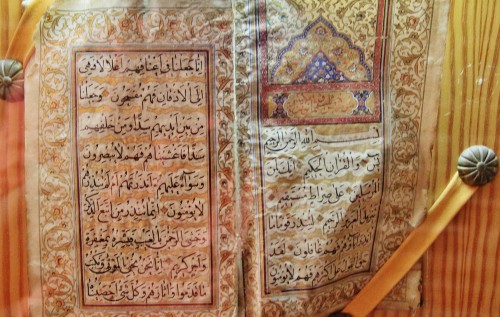 بسم الله الرحمن الرحيم
يس والقرآن الحكيم انك لمن
المرسلين على صراط مستقيم
تنزيل العزيز الرحيم لتنذر قوما ما
انذر آباؤهم فهم غافلون لقد
حق القول على اكثرهم فهم لا يؤمنون
انا جعلنا في اعناقهم اغلالا فهي
الى الاذقان فهم مقمحون وجعلنا
من بين ايديهم سدا ومن خلفهم
سدا فاغشيناهم فهم لا يبصرون
وسوآء عليهم ءانذرتهم ام لم تنذرهم
لا يؤمنون انما تنذر من اتبع الذكر
وخشي الرحمن بالغيب فبشره بمغفرة
واجر كريم انا نحن نحيي الموتى ونكتب
ما قدموا وآثارهم وكل شيء احصيناه